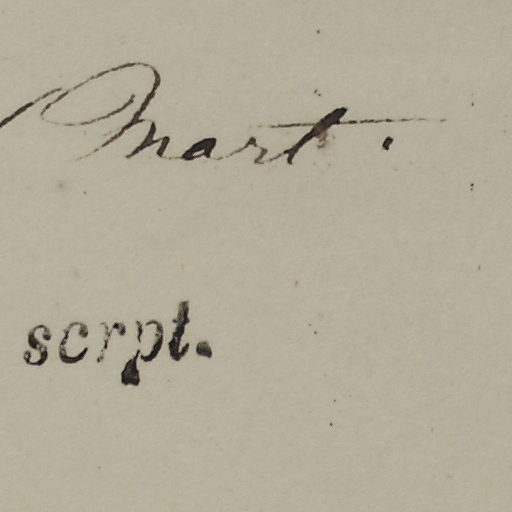 Mart.
scrpt.